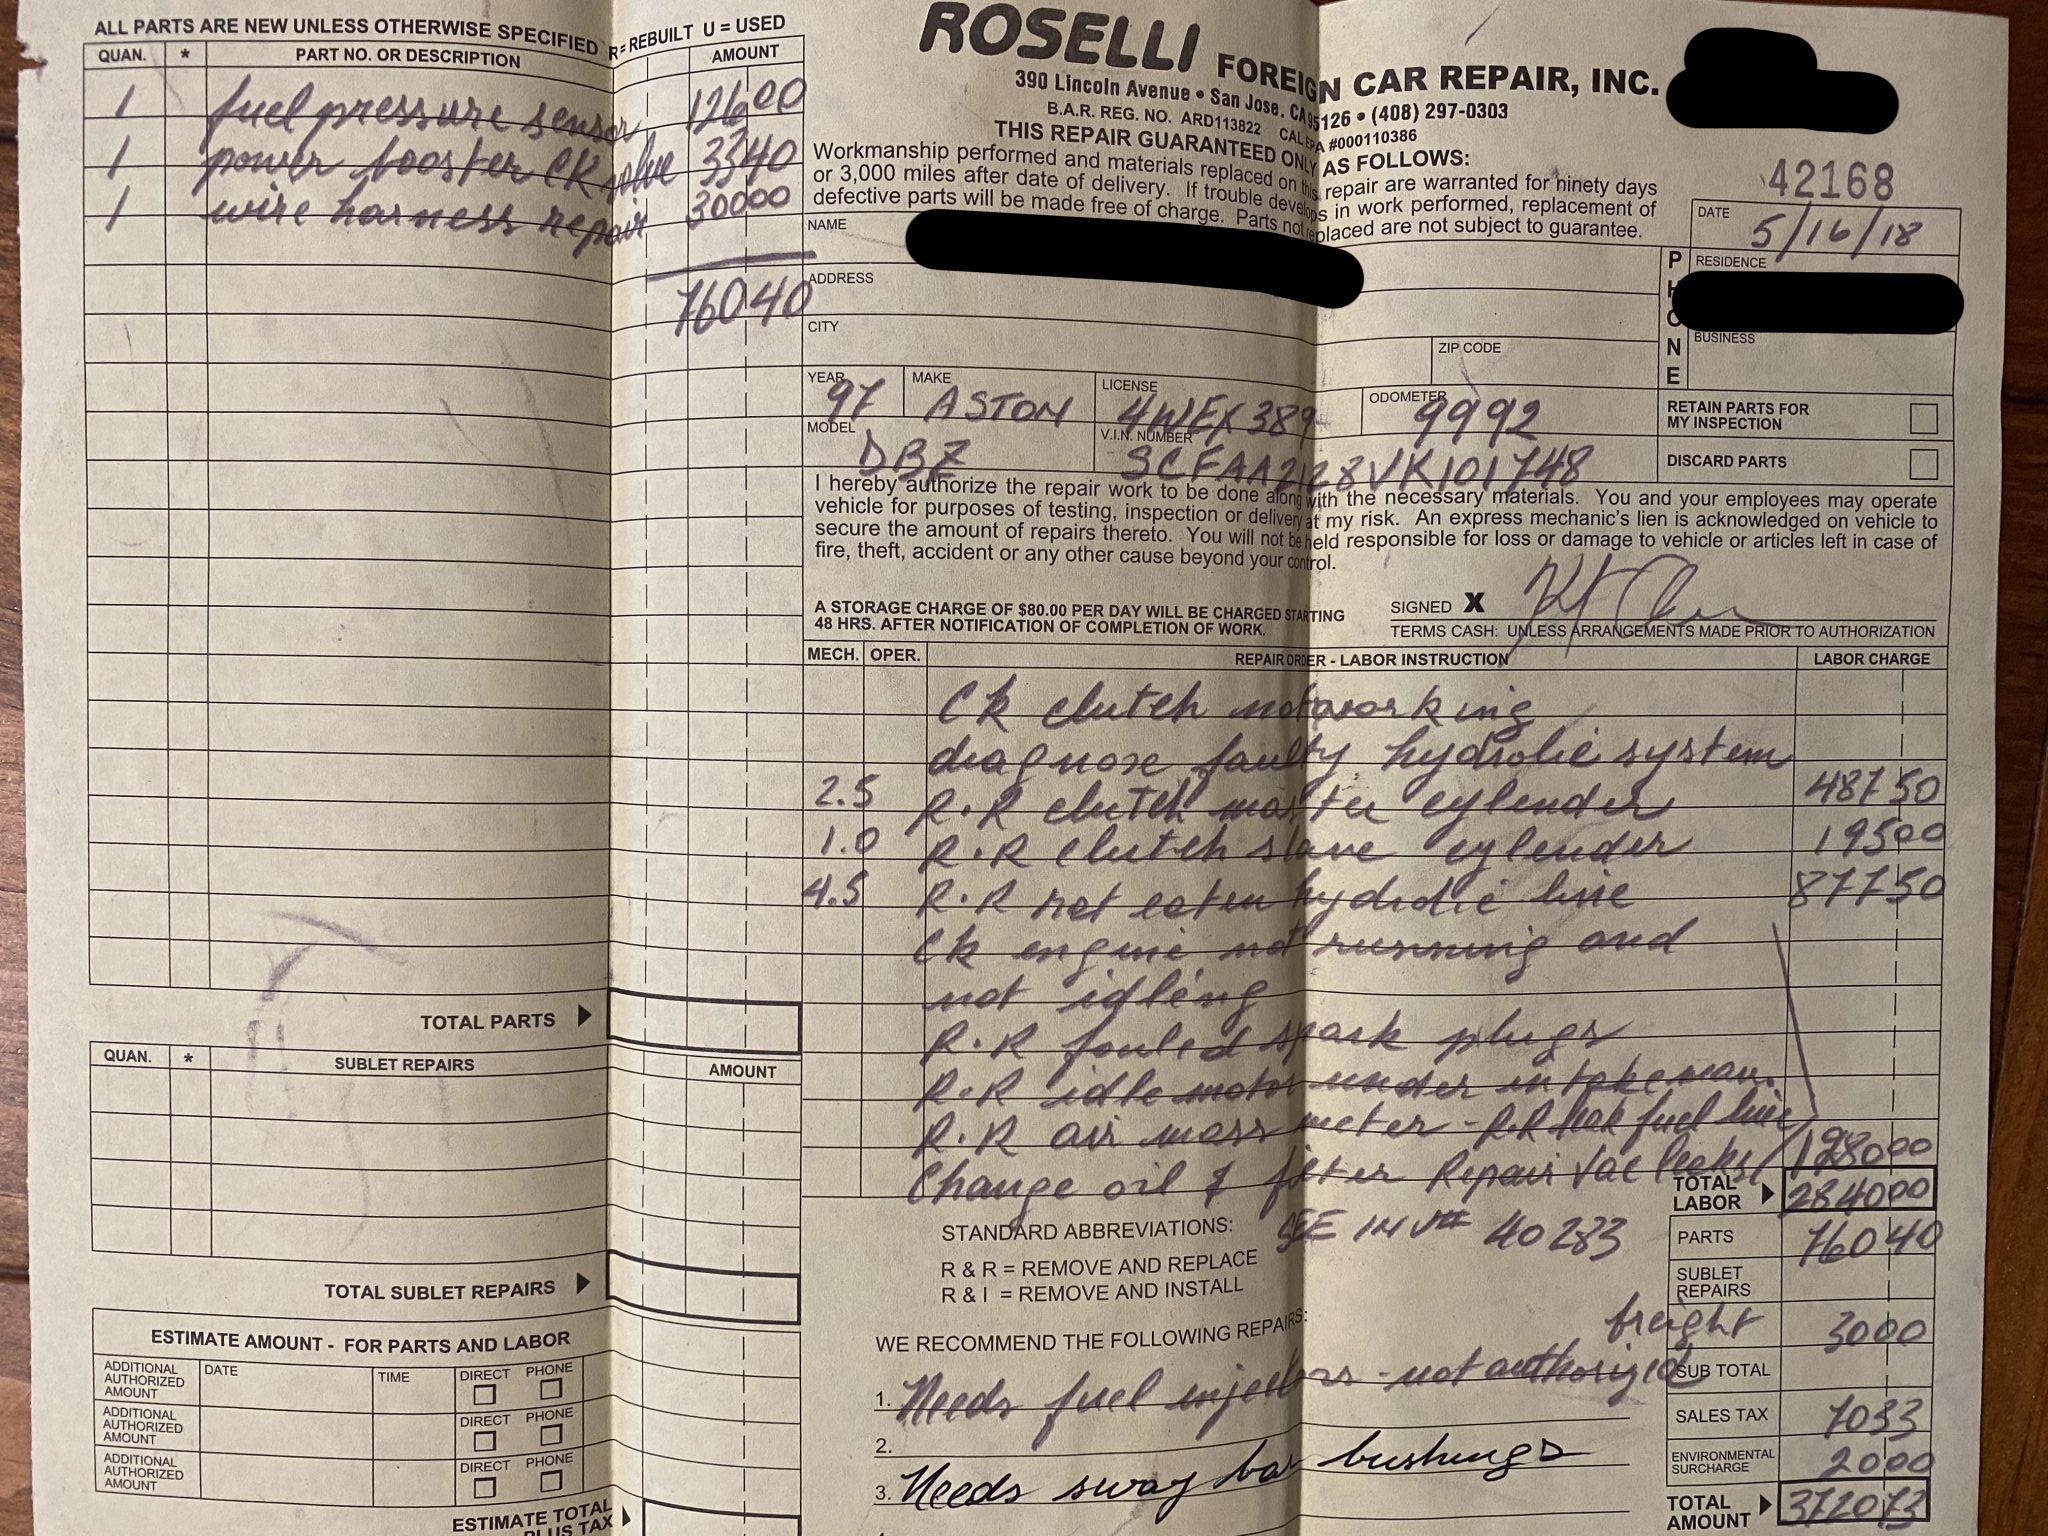 ALL PARTS ARE NEW UNLESS OTHERWISE SPECIFIED R = REBUILT U = USED
QUAN. * PART NO. OR DESCRIPTION AMOUNT
1 fuel pressure sensor 126 00
1 power booster CK valve 33 40
1 wire harness repair 300 00
760 40
TOTAL PARTS
QUAN. * SUBLET REPAIRS AMOUNT
TOTAL SUBLET REPAIRS
ESTIMATE AMOUNT - FOR PARTS AND LABOR
ADDITIONAL AUTHORIZED AMOUNT DATE TIME DIRECT PHONE
ADDITIONAL AUTHORIZED AMOUNT DIRECT PHONE
ADDITIONAL AUTHORIZED AMOUNT DIRECT PHONE
ESTIMATE TOTAL
PLUS TAX
ROSELLI FOREIGN CAR REPAIR, INC.
390 Lincoln Avenue • San Jose, CA 95126 • (408) 297-0303
B.A.R. REG. NO. ARD113822 CAL EPA #000110386
THIS REPAIR GUARANTEED ONLY AS FOLLOWS:
Workmanship performed and materials replaced on this repair are warranted for ninety days
or 3,000 miles after date of delivery. If trouble develops in work performed, replacement of
defective parts will be made free of charge. Parts not replaced are not subject to guarantee.
42168
DATE 5/16/18
NAME
ADDRESS
CITY
ZIP CODE
PHONE
RESIDENCE
BUSINESS
YEAR 97 MAKE ASTON LICENSE 4WEX389 ODOMETER 9992
MODEL DB7 V.I.N. NUMBER SCFAA2128VK101748
RETAIN PARTS FOR
MY INSPECTION
DISCARD PARTS
I hereby authorize the repair work to be done along with the necessary materials. You and your employees may operate
vehicle for purposes of testing, inspection or delivery at my risk. An express mechanic's lien is acknowledged on vehicle to
secure the amount of repairs thereto. You will not be held responsible for loss or damage to vehicle or articles left in case of
fire, theft, accident or any other cause beyond your control.
A STORAGE CHARGE OF $80.00 PER DAY WILL BE CHARGED STARTING
48 HRS. AFTER NOTIFICATION OF COMPLETION OF WORK.
SIGNED X
TERMS CASH: UNLESS ARRANGEMENTS MADE PRIOR TO AUTHORIZATION
MECH. OPER. REPAIR ORDER - LABOR INSTRUCTION LABOR CHARGE
Ck clutch not working
diagnose faulty hydrolic system
2.5 R.R clutch master cylender 487 50
1.0 R.R clutch slave cylender 195 00
4.5 R.R rat eaten hydrolic line 877 50
Ck engine not running and
not idling
R.R fouled spark plugs
R.R idle motor under intake man.
R.R air mass meter - R.R fuel line
Change oil & filter Repair Vac leaks 1280 00
TOTAL LABOR 2840 00
STANDARD ABBREVIATIONS: SEE INV# 40283
R & R = REMOVE AND REPLACE
R & I = REMOVE AND INSTALL
PARTS 760 40
SUBLET REPAIRS
freight 30 00
SUB TOTAL
SALES TAX 70 33
ENVIRONMENTAL SURCHARGE 20 00
TOTAL AMOUNT 3720 73
WE RECOMMEND THE FOLLOWING REPAIRS:
1. Needs fuel injectors - not authorized
2.
3. Needs sway bar bushings